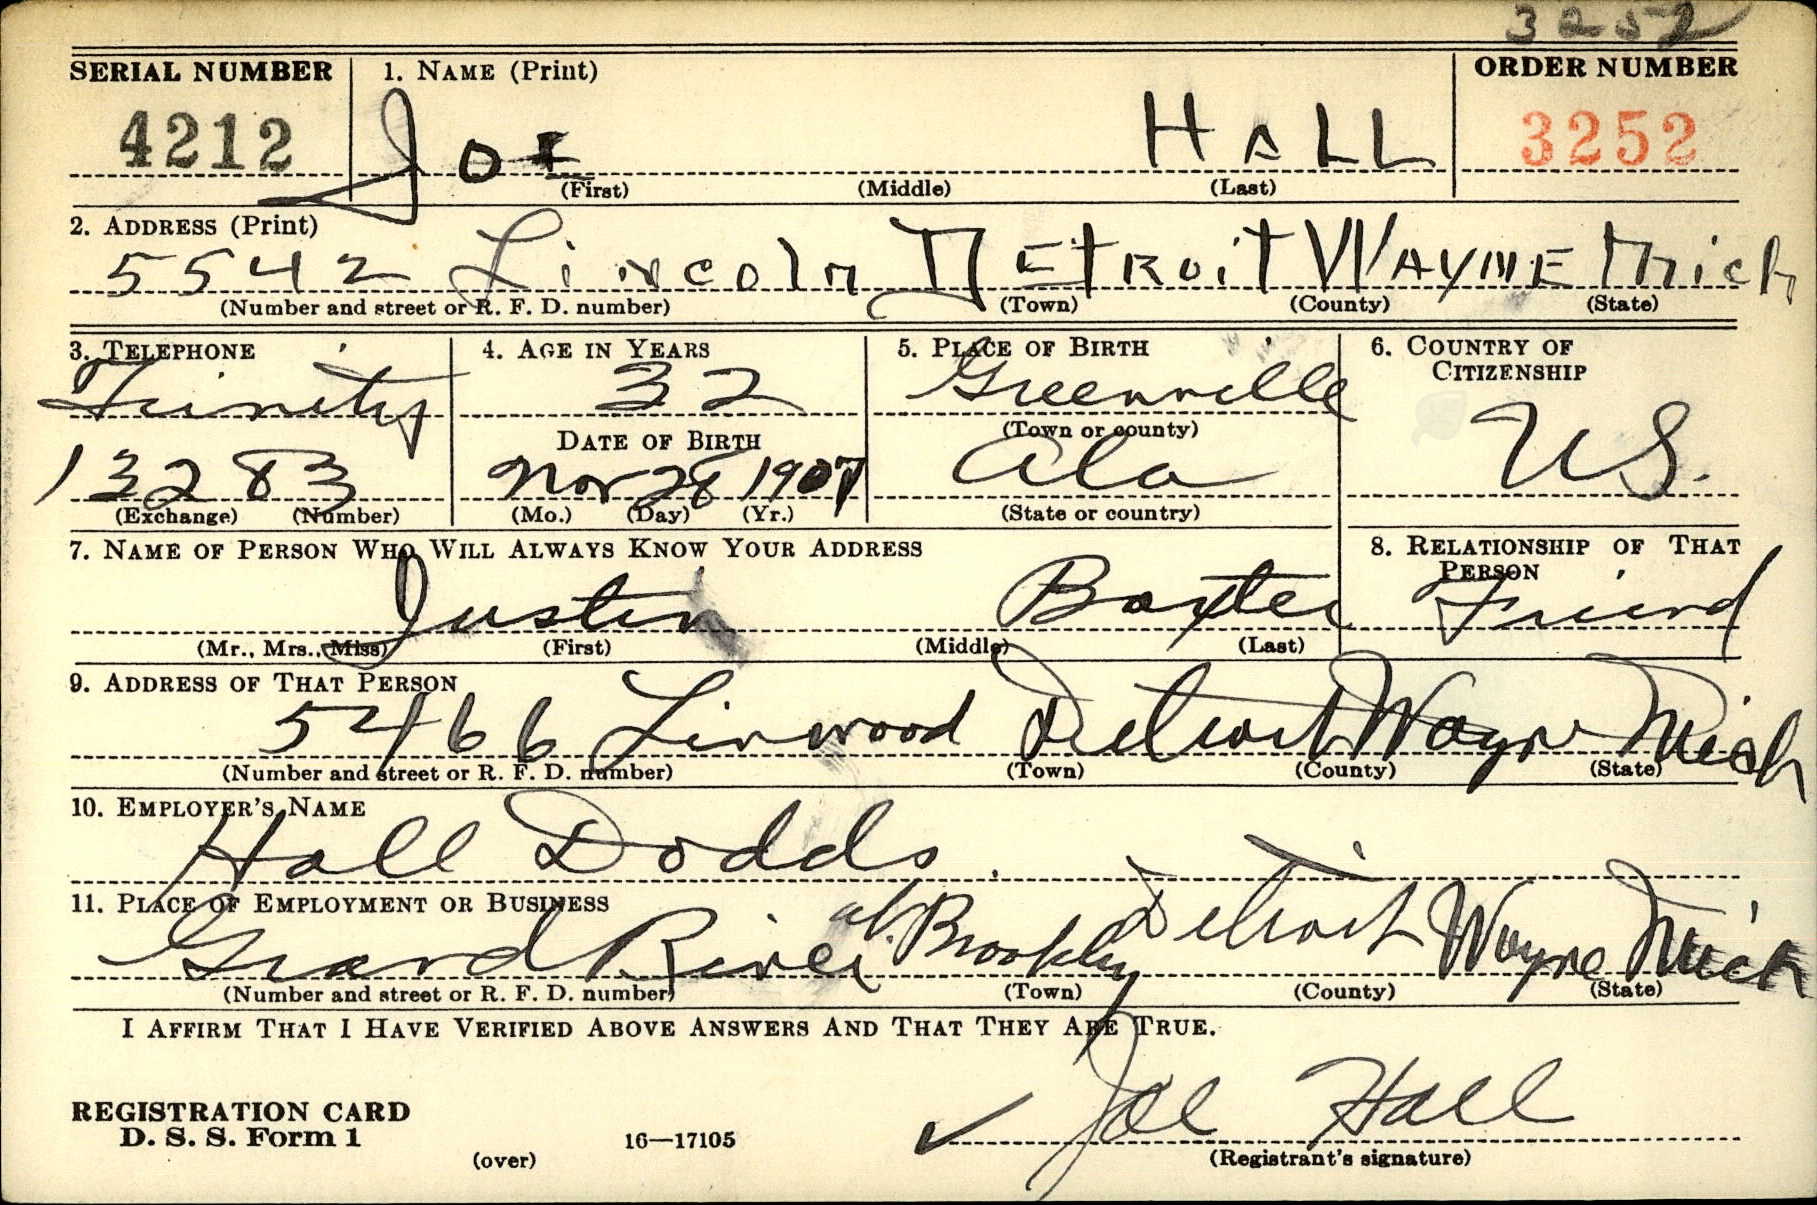 3252
SERIAL NUMBER 1. NAME (Print) ORDER NUMBER
4212 JOE HALL 3252
(First) (Middle) (Last)
2. ADDRESS (Print)
5542 Lincoln DEtroit WAYNE Mich
(Number and street or R. F. D. number) (Town) (County) (State)
3. TELEPHONE 4. AGE IN YEARS 5. PLACE OF BIRTH 6. COUNTRY OF
CITIZENSHIP
Trinity 32 Greenville
(Town or county)
DATE OF BIRTH
13283 Nov 28 1907 Ala U S.
(Exchange) (Number) (Mo.) (Day) (Yr.) (State or country)
7. NAME OF PERSON WHO WILL ALWAYS KNOW YOUR ADDRESS 8. RELATIONSHIP OF THAT
PERSON
Justin Baxter Friend
(Mr., Mrs., Miss) (First) (Middle) (Last)
9. ADDRESS OF THAT PERSON
5466 Linwood Detroit Wayne Mich
(Number and street or R. F. D. number) (Town) (County) (State)
10. EMPLOYER'S NAME
Hall Dodds.
11. PLACE OF EMPLOYMENT OR BUSINESS
Grand River at Detroit Wayne Mich
(Number and street or R. F. D. number) (Town) (County) (State)
I AFFIRM THAT I HAVE VERIFIED ABOVE ANSWERS AND THAT THEY ARE TRUE.
Joe Hall
REGISTRATION CARD
D. S. S. Form 1 16—17105
(over) (Registrant's signature)